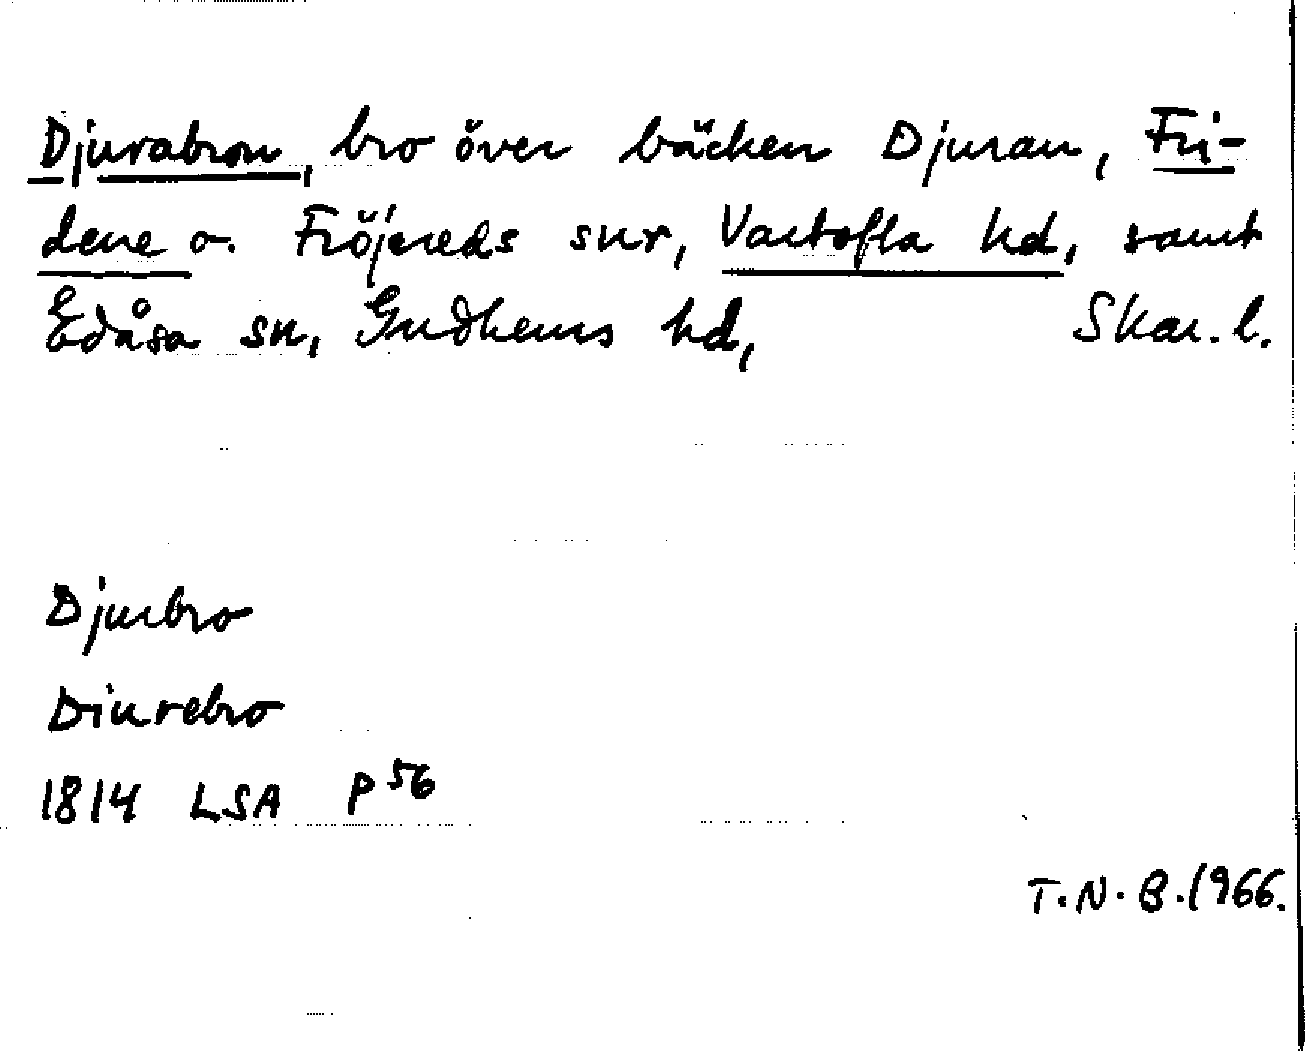 Djurabron, bro över bäcken Djuran, Fri-
dene o. Fröjereds snr, Vartofta hd, samt
Edåsa sn, Gudhems hd, Skar. l.
Djurbro
Diurebro
1814 LSA P 56
T.N.B. 1966.